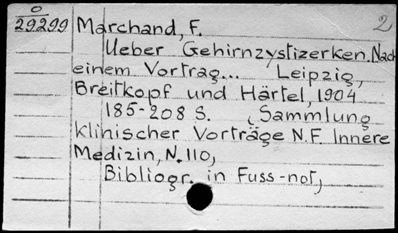 O
29299 Marchand, F. 2
Ueber Gehirnzystizerken. Nach
einem Vortrag... Leipzig,
Breitkopf und Härtel, 1904
185-208 S. (Sammlung
klinischer Vorträge N.F. Innere
Medizin, N. 110,
Bibliogr. in Fuss-not,